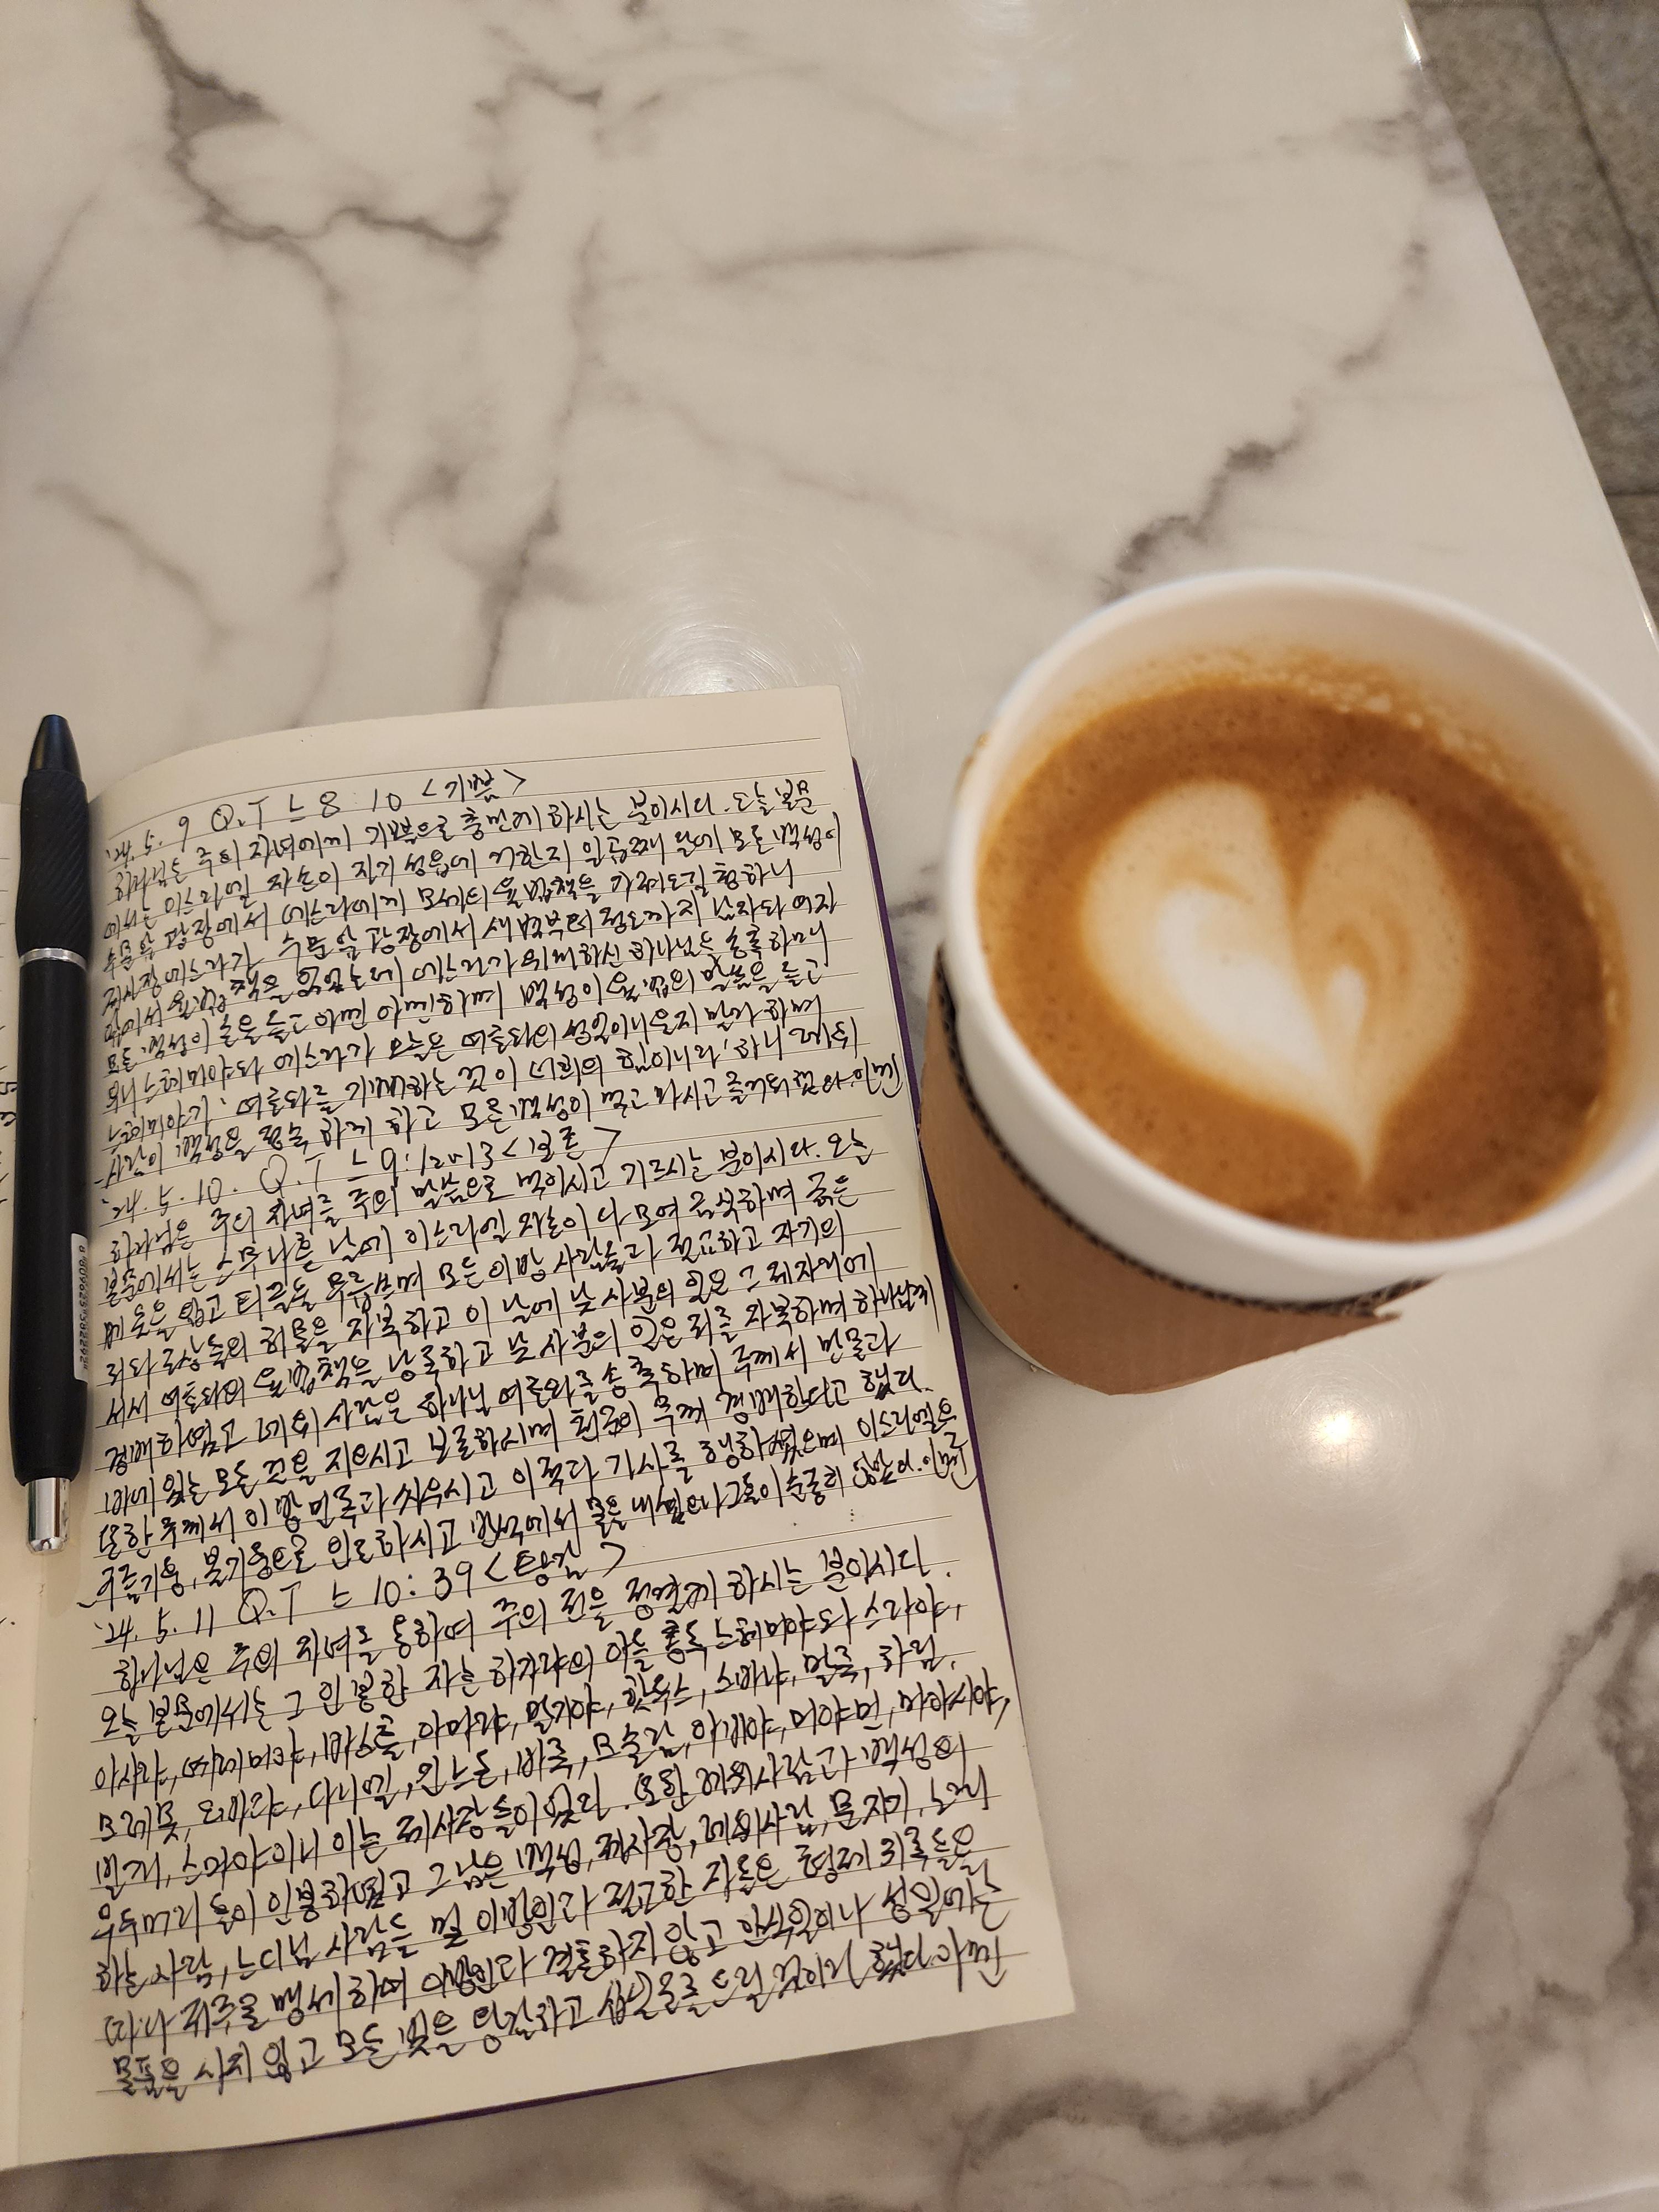 '24. 5. 9 Q.T 느 8:10 <기쁨>
하나님은 주의 자녀에게 기쁨으로 충만케 하시는 분이시다. 오늘 본문
에서는 이스라엘 자손이 자기 성읍에 거한지 일곱째 달에 모든 백성이
수문앞 광장에서 에스라에게 모세의 율법책을 가져오길 청하니
제사장 에스라가 수문 앞 광장에서 새벽부터 정오까지 남자와 여자
앞에서 율법책을 읽었는데 에스라가 위대하신 하나님을 송축하매
모든 백성이 손을 들고 아멘 아멘하며 백성이 율법의 말씀을 듣고
우니 느헤미야와 에스라가 오늘은 여호와의 성일이니 울지 말라 하며
느헤미야가 '여호와를 기뻐하는 것이 너희의 힘이니라' 하니 레위
사람이 백성을 정숙하게 하고 모든 백성이 먹고 마시고 즐거워했다. 아멘
'24. 5. 10. Q.T 느 9:12~13 <보존>
하나님은 주의 자녀를 주의 말씀으로 먹이시고 기르시는 분이시다. 오늘
본문에서는 스무나흗 날에 이스라엘 자손이 다 모여 금식하며 굵은
베 옷을 입고 티끌을 무릅쓰며 모든 이방 사람들과 절교하고 자기의
죄와 조상들의 허물을 자복하고 이 날에 낮 사분의 일은 그 제자리에
서서 여호와의 율법책을 낭독하고 낮 사분의 일은 죄를 자복하며 하나님께
경배하였고 레위 사람은 하나님 여호와를 송축하며 주께서 만물과
바에 있는 모든 것을 지으시고 보존하시며 천군이 주께 경배한다고 했다.
또한 주께서 이방 민족과 싸우시고 이적과 기사를 행하셨으며 이스라엘을
구름기둥, 불기둥으로 인도하시고 반석에서 물을 내셨으나 그들이 순종치 않았다. 아멘
'24. 5. 11 Q.T 느 10:39 <등걸>
하나님은 주의 자녀를 통하여 주의 전을 정결케 하시는 분이시다.
오늘 본문에서는 그 인봉한 자는 하가랴의 아들 총독 느헤미야와 스라야,
아사랴, 예레미야, 바스훌, 아마랴, 말기야, 핫두스, 스바냐, 말룩, 하림,
므레못, 오바댜, 다니엘, 긴느돈, 바룩, 므술람, 아비야, 미야민, 마아시야,
빌개, 스마야이니 이는 제사장들이었다. 또한 레위사람과 백성의
우두머리들이 인봉하였고 그 남은 백성, 제사장, 레위사람, 문지기, 노래
하는 사람, 느디님 사람들 및 이방인과 절교한 자들은 형제 귀족들을
따라 저주로 맹세하며 이방인과 결혼하지 않고 안식일이나 성일에는
물품을 사지 않고 모든 빚을 탕감하고 십일조를 드릴 것이라 했다. 아멘